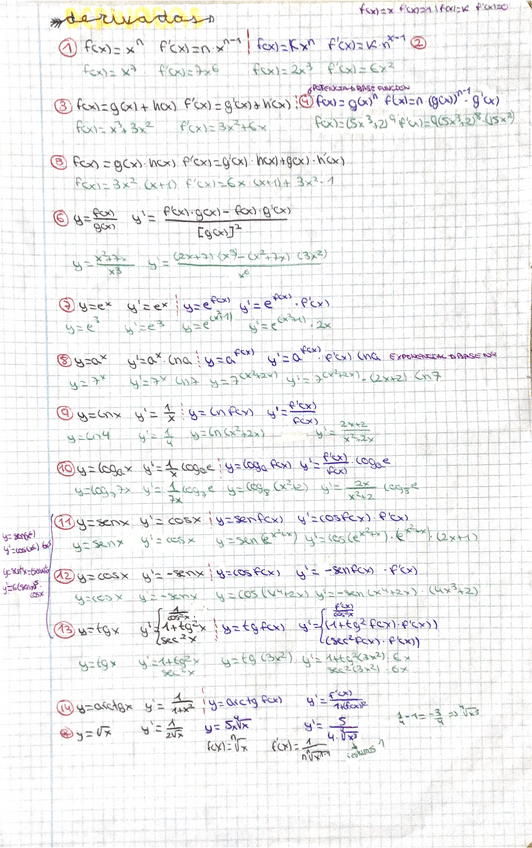 derivadas
f(x)=x f'(x)=1 | f(x)=K f'(x)=0
① f(x)=xⁿ f'(x)=n·xⁿ⁻¹ | f(x)=Kxⁿ f'(x)=K·n·xⁿ⁻¹ ②
f(x)=x⁷ f'(x)=7x⁶ f(x)=2x³ f'(x)=6x²
POTENCIA D BASE FUNCION
③ f(x)=g(x)+h(x) f'(x)=g'(x)+h'(x) ④ f(x)=g(x)ⁿ f(x)=n(g(x))ⁿ⁻¹·g'(x)
f(x)=x³+3x² f'(x)=3x²+6x f(x)=(5x³+2)⁹ f'(x)=9(5x³+2)⁸·(15x²)
⑤ f(x)=g(x)·h(x) f'(x)=g'(x)·h(x)+g(x)·h'(x)
f(x)=3x²(x+1) f'(x)=6x(x+1)+3x²·1
⑥ y=f(x)/g(x) y'=f'(x)·g(x)-f(x)·g'(x)/[g(x)]²
y=x²+7x/x³ y=(2x+7)(x³)-(x²+7x)(3x²)/x⁶
⑦ y=eˣ y'=eˣ | y=e^f(x) y'=e^f(x)·f'(x)
y=e³ y'=e³ y=e^(x²+1) y'=e^(x²+1)·2x
⑧ y=aˣ y'=aˣ·lna | y=a^f(x) y'=a^f(x)·f'(x) lna EXPONENCIAL D BASE Nº
y=7ˣ y'=7ˣ ln7 y=7^(x²+2x) y'=7^(x²+2x)·(2x+2) ln7
⑨ y=lnx y'=1/x | y=lnf(x) y'=f'(x)/f(x)
y=ln4 y'=1/4 y=ln(x²+2x) y'=2x+2/x²+2x
⑩ y=logₐx y'=1/x logₐe | y=logₐf(x) y'=f'(x)/f(x)·logₐe
y'=1/7x y'=2x/x²+2
⑪ y=senx y'=cosx | y=senf(x) y'=cosf(x)·f'(x)
y=senx y'=cosx y=sen(e^x²+x) y'=cos(e^x²+x)·e^x²+x·(2x+1)
⑫ y=cosx y'=-senx | y=cosf(x) y'=-senf(x)·f'(x)
y=cosx y'=-senx y=cos(x⁴+2x) y'=-sen(x⁴+2x)·(4x³+2)
⑬ y=tgx y' { 1/cos²x 1+tg²x sec²x | y=tgf(x) y'= { f'(x)/cos²f(x) (1+tg²f(x)·f'(x)) (sec²f(x)·f'(x))
y=tgx y'=1+tg²x sec²x y=tg(3x²) y'=1+tg²(3x²)·6x sec²(3x²)·6x
⑭ y=arctgx y'=1/1+x² | y=arctgf(x) y'=f'(x)/1+f(x)²
y=√x y'=1/2√x y=5⁴√x y'=5/4·⁴√x³ 1/4-1=-3/4 ⇒ ⁴√x³
f(x)=ⁿ√x f'(x)=1/nⁿ√xⁿ⁻¹